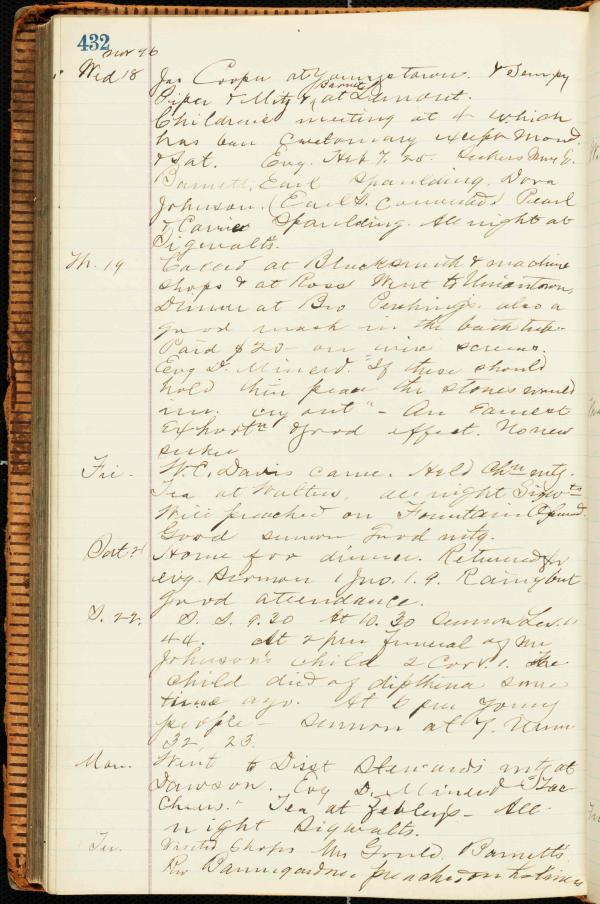 432
Nov 96
Wed 18 Jas Cooper at Youngstown. &
Piper & Mitz & Barnett at Lemont.
Childrens meeting at 4 which
has been customary except Mond.
& Sat. Evg. Heb 7.25. Seekers
Barnett, Earl Spaulding, Dora
Johnson. (Earl S. converted) Pearl
& Carrie Spaulding. All night at
Sigwalts.
Th. 19 Called at Blacksmith & machine
shops & at Ross Went to Uniontown,
Dinner at Bro Pershings. also a
good wash in the bath tub.
Paid $20 on wire screens.
Evg D. Minerd. "If these should
hold their peace the stones would
cry out" - An earnest
Exhortn & good effect. No new
seeker
Fri. W. C. Davis came. Held Chn mtg.
Tea at Walters, all night Sigwts
Will preached on Fountain Opened.
Good sermon Good mtg.
Sat. 21 Home for dinner. Returned for
evg. Sermon 1 Jno. 1.9. Rainy but
good attendance.
S. 22. S. S. 9.30 At 10.30 Sermon Lev. 11
44. At 2 pm Funeral of Mr
Johnson's child 2 Cor. 1. The
child died of diptheria some
time ago. At 6 pm Young
people - Sermon at 7. Num
32, 23.
Mon. Went to Dist Stewards mtg at
Dawson. Evg D. Minerd
Tea at - All
night Sigwalts.
Tu. Visited Shops Mrs Gould. Barnetts.
Rev Baumgardner preached on